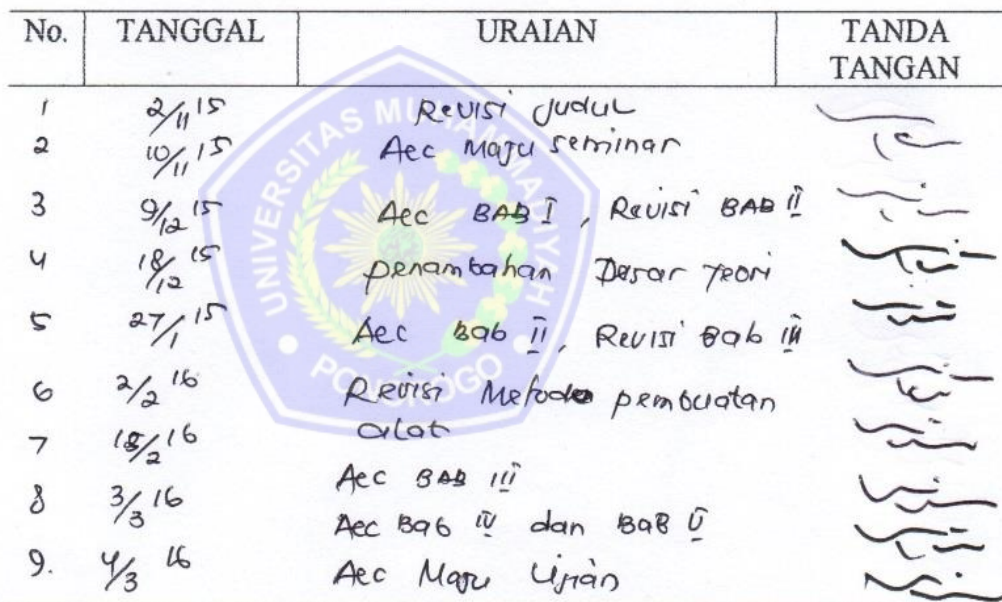 No. TANGGAL URAIAN TANDA TANGAN
1 2/11 15 Revisi Judul
2 10/11 15 Acc Maju seminar
3 9/12 15 Acc BAB I, Revisi BAB II
4 18/12 15 penambahan Dasar Teori
5 27/1 15 Acc Bab II, Revisi Bab III
6 2/2 16 Revisi Metode pembuatan
alat
7 18/2 16
Acc BAB III
8 3/3 16
Acc Bab IV dan BaB V
9. 4/3 16 Acc Maju Ujian
UNIVERSITAS MUHAMMADIYAH
PONOROGO